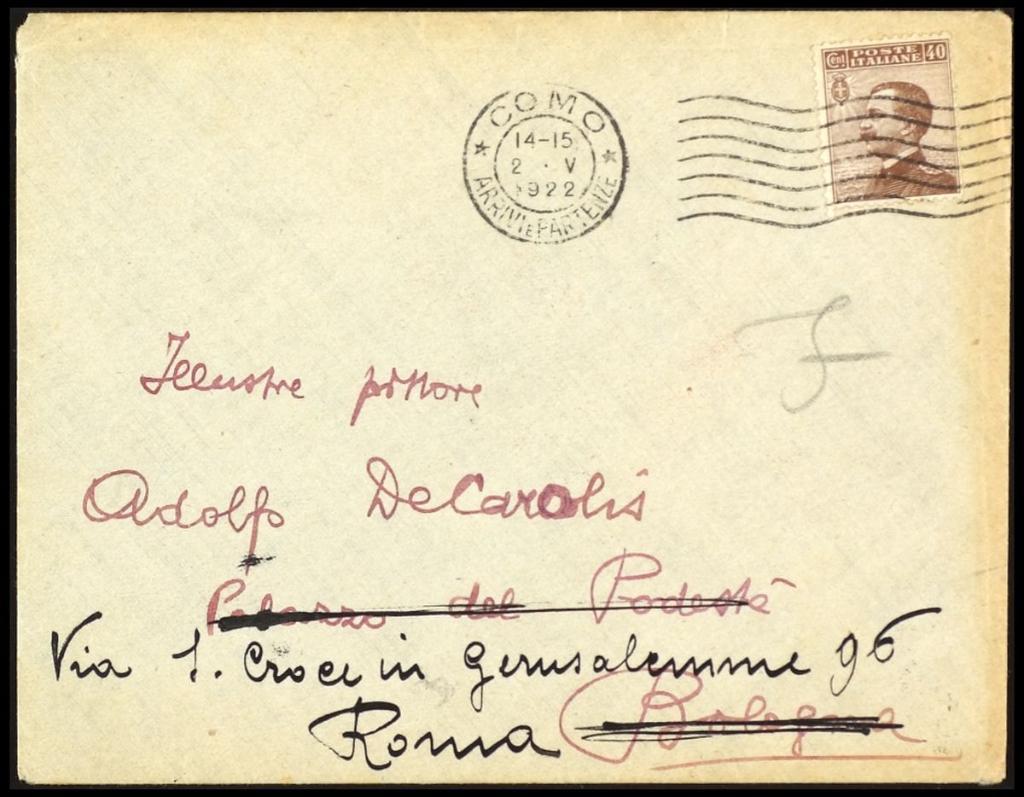 Cent. POSTE ITALIANE 40
COMO
14-15
2 · V
1922
ARRIVI E PARTENZE
Illustre pittore
Adolfo De Carolis
Palazzo del Podestà
Via S. Croce in Gerusalemme 96
Roma Bologna